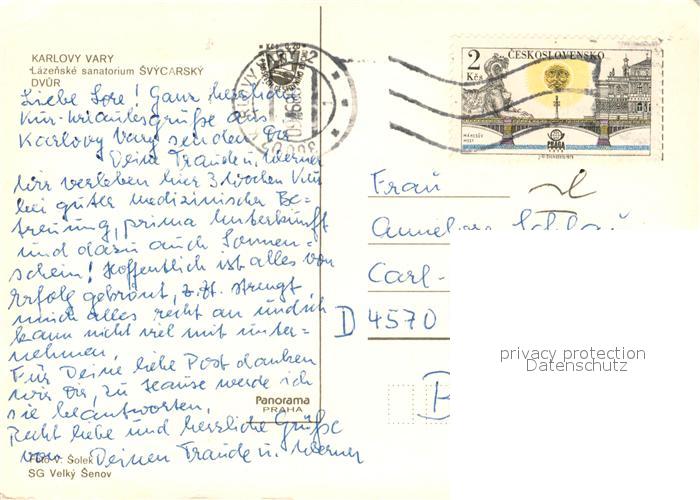 KARLOVY VARY
Lázeňské sanatorium ŠVÝCARSKÝ
DVŮR
Liebe Lore! Ganz herzliche
Kur-Urlaubsgrüße aus
Karlovy Vary senden Dir
Deine Traude u. Werner
Wir verleben hier 3 Wochen Kur
bei guter medizinischer Be-
treuung, prima Unterkunft
und dazu auch Sonnen-
schein! Hoffentlich ist alles von
Erfolg gekrönt, z. Zt. strengt
mich alles recht an und ich
kann nicht viel mit unter-
nehmen.
Für Deine liebe Post danken
wir Dir, zu Hause werde ich
sie beantworten.
Recht liebe und herzliche Grüße
von Deinen Traude u. Werner
Foto V. Šolek
SG Velký Šenov
Panorama
PRAHA
KARLOVY VARY 2
2 Kčs
ČESKOSLOVENSKO
MÁNESŮV
MOST
PRAGA
Frau
Carl-
D 4570
privacy protection
Datenschutz